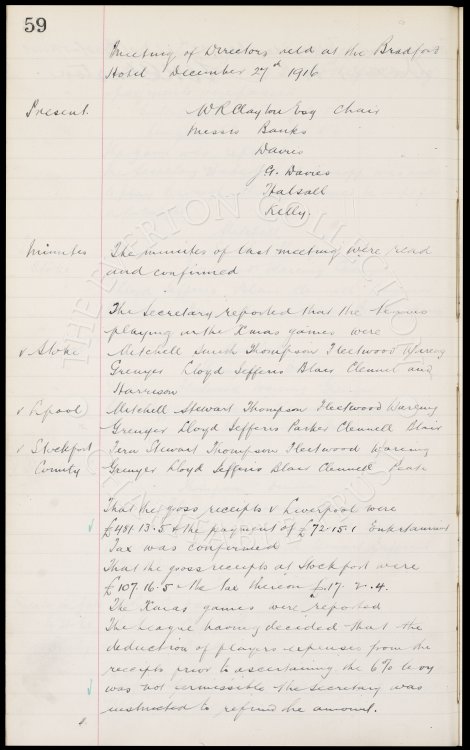 59
Meeting of Directors held at the Bradford
Hotel December 27th 1916
Present. W R Clayton Esq Chair
Messrs Banks
Davies
G. Davies
Halsall
Kelly.
Minutes The minutes of last meeting were read
and confirmed
The Secretary reported that the
playing in the Xmas games were
v Stoke Mitchell Smith Thompson Fleetwood Wareing
Grenyer Lloyd Jefferis Blair Clennell and
Harrison
v L'pool Mitchell Stewart Thompson Fleetwood Wareing
Grenyer Lloyd Jefferis Parker Clennell Blair
v Stockport Fern Stewart Thompson Fleetwood Wareing
County Grenyer Lloyd Jefferis Blair Clennell
That the gross receipts v Liverpool were
£481.13.5 & the payment of £72.15.1 Entertainment
Tax was confirmed
That the gross receipts at Stockport were
£107.16.5 & the tax thereon £17. .4.
The Xmas games were reported
The League having decided that the
deduction of players expenses from the
receipts prior to ascertaining the 6% levy
was not permissible the Secretary was
instructed to refund the amount.
THE EVERTON COLLECTION